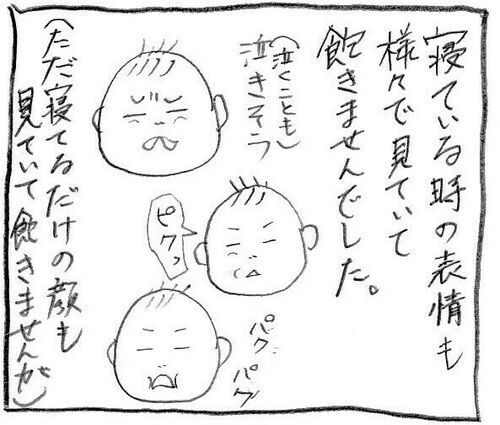 寝ている時の表情も
様々で見ていて
飽きませんでした。
泣きそう
（泣くことも）
ピクッ
パク パク
（ただ寝てるだけの顔も
見ていて飽きませんが）